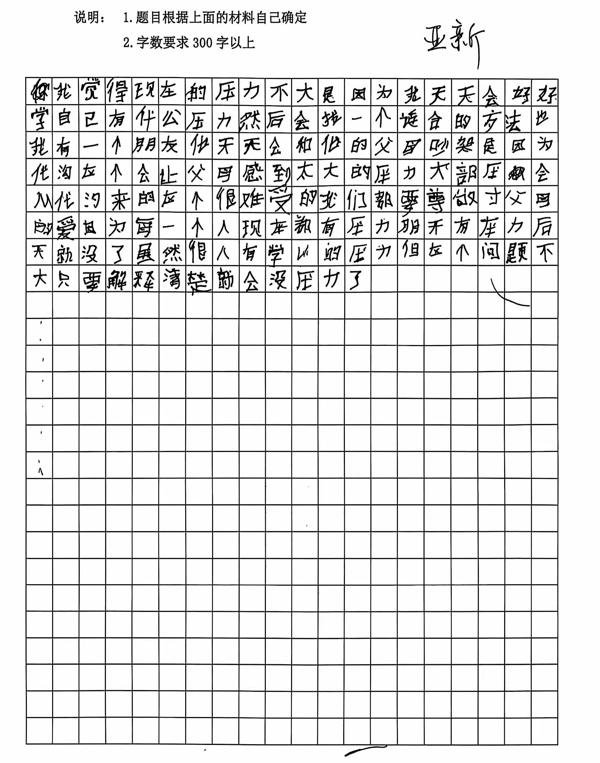 说明： 1.题目根据上面的材料自己确定
2.字数要求 300 字以上
亚新
我觉得现在的压力不大是因为我天天会好好
学自己有什公压力然后会找一个适合的方法也
我有一个朋友他天天会和他的父母吵架是因为
他沟在个会让父母感到太大的压力大部压都会
从他沟来的在个很难受的我们都要尊敬寸父母
的爱因为每一个人现在都有压力明天有在力后
天就没了虽然很人有学以的压力但在个问题不
大只要解释清楚就会没压力了